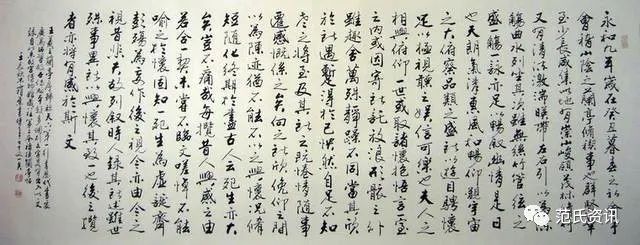 永和九年歲在癸丑暮春之初會于
會稽山陰之蘭亭脩禊事也群賢畢
至少長咸集此地有崇山峻領茂林脩竹
又有清流激湍暎帶左右引以為流
觴曲水列坐其次雖無絲竹管弦之
盛一觴一詠亦足以暢敘幽情是日
也天朗氣清惠風和暢仰觀宇宙
之大俯察品類之盛所以遊目騁懷
足以極視聽之娛信可樂也夫人之
相與俯仰一世或取諸懷抱悟言一室
之內或因寄所託放浪形骸之外
雖趣舍萬殊靜躁不同當其欣
於所遇暫得於己怏然自足不知
老之將至及其所之既惓情隨事
遷感慨係之矣向之所欣俛仰之間
以為陳迹猶不能不以之興懷況脩
短隨化終期於盡古人云死生亦大
矣豈不痛哉每攬昔人興感之由
若合一契未嘗不臨文嗟悼不能
喻之於懷固知一死生為虛誕齊
彭殤為妄作後之視今亦由今之
視昔悲夫故列敘時人錄其所述雖世
殊事異所以興懷其致一也後之攬
者亦將有感於斯文
范氏资讯